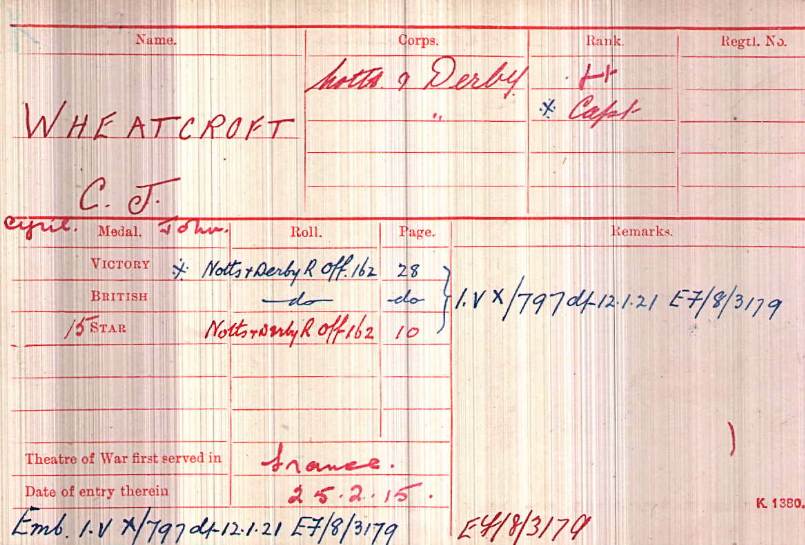 Name. Corps. Rank. Regtl. No.
Notts & Derby Lt
WHEATCROFT " * Capt
C. J.
Cyril. John.
Medal. Roll. Page. Remarks.
VICTORY * Notts + Derby R Off. 162 28
BRITISH do do I.V X/797 df-12.1.21 EF/8/3179
15 STAR Notts + Derby R Off 162 10
Theatre of War first served in France.
Date of entry therein 25.2.15.
K. 1380.
Emb. I.V X/797 df-12.1.21 EF/8/3179 EF/8/3179